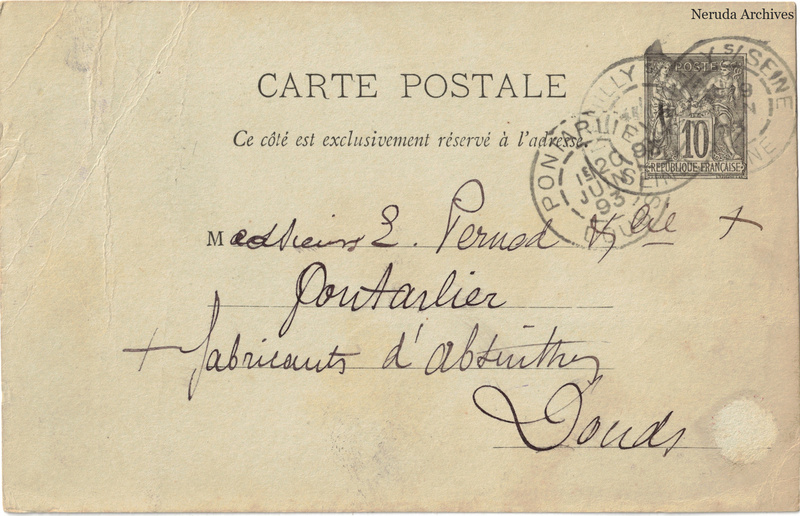 Neruda Archives
CARTE POSTALE
Ce côté est exclusivement réservé à l'adresse.
POSTE
10
RÉPUBLIQUE FRANÇAISE
PONTARLIER
20
JUIN
93
DOUBS
S/SEINE
Messieurs E. Pernod & Cie
Pontarlier
fabricants d'absinthe
Doubs